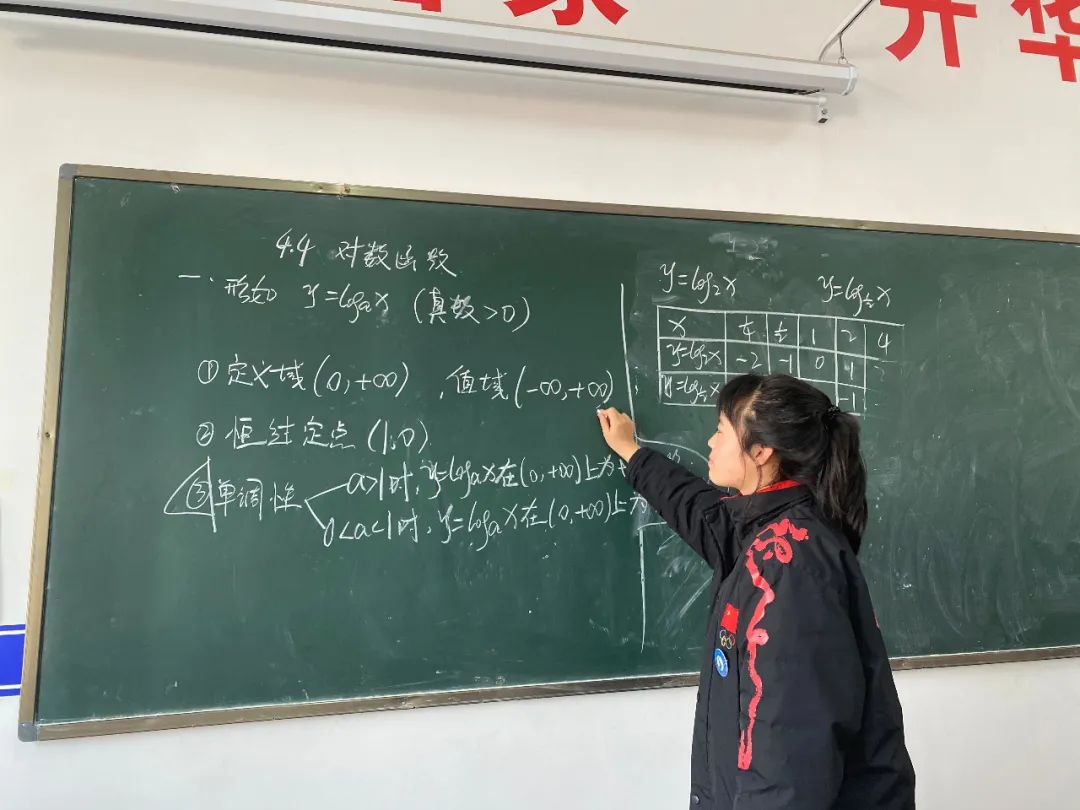 开华
4.4 对数函数
一. 形如 y=logₐx (真数>0)
①定义域(0,+∞), 值域(-∞,+∞)
②恒过定点(1,0)
③单调性
a>1时, y=logₐx在(0,+∞)上为
0<a<1时, y=logₐx在(0,+∞)上为
y=log₂x y=log½x
x ¼ ½ 1 2 4
y=log₂x -2 -1 0 1
y=log½x -1